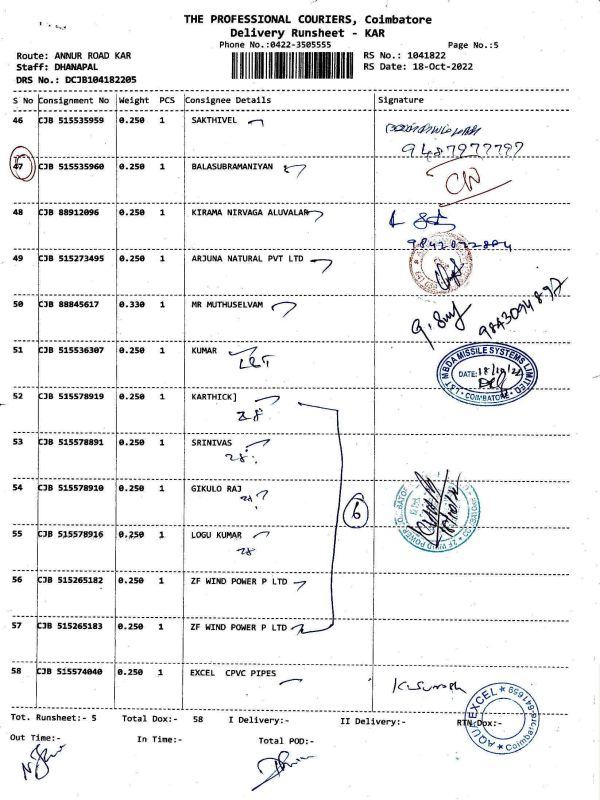 THE PROFESSIONAL COURIERS, Coimbatore
Delivery Runsheet - KAR
Phone No.:0422-3505555 Page No.:5
Route: ANNUR ROAD KAR RS No.: 1041822
Staff: DHANAPAL RS Date: 18-Oct-2022
DRS No.: DCJB104182205
S No Consignment No Weight PCS Consignee Details Signature
46 CJB 515535959 0.250 1 SAKTHIVEL
9487977797
47 CJB 515535960 0.250 1 BALASUBRAMANIYAN
48 CJB 88912096 0.250 1 KIRAMA NIRVAGA ALUVALAR
9842022884
49 CJB 515273495 0.250 1 ARJUNA NATURAL PVT LTD
50 CJB 88845617 0.330 1 MR MUTHUSELVAM
51 CJB 515536307 0.250 1 KUMAR
L&T
L&T MBDA MISSILE SYSTEMS LIMITED
DATE: 18/10/22
COIMBATORE
52 CJB 515578919 0.250 1 KARTHICK]
28
53 CJB 515578891 0.250 1 SRINIVAS
28
54 CJB 515578910 0.250 1 GIKULO RAJ
28
6
55 CJB 515578916 0.250 1 LOGU KUMAR
28
ZF WIND POWER
56 CJB 515265182 0.250 1 ZF WIND POWER P LTD
57 CJB 515265183 0.250 1 ZF WIND POWER P LTD
58 CJB 515574040 0.250 1 EXCEL CPVC PIPES
K. Suresh
AQU EXCEL * Coimbatore-641659 *
Tot. Runsheet:- 5 Total Dox:- 58 I Delivery:- II Delivery:- RTN Dox:-
Out Time:- In Time:- Total POD:-